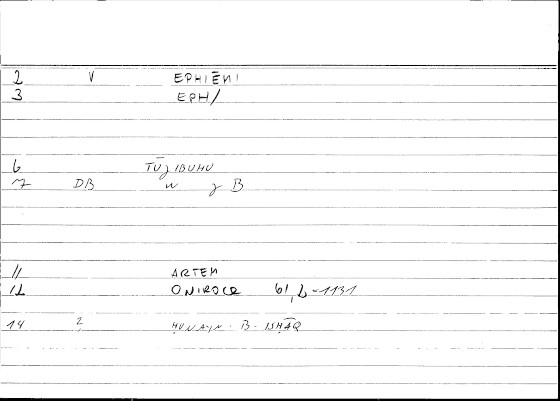 2 V EPHIĒMI
3 EPH/
6 TŪJIBUHU
7 DB w j B
11 ARTEM
12 ONIROCR 61,2-1131
14 2, ḤUNAYN · B · ISḤĀQ